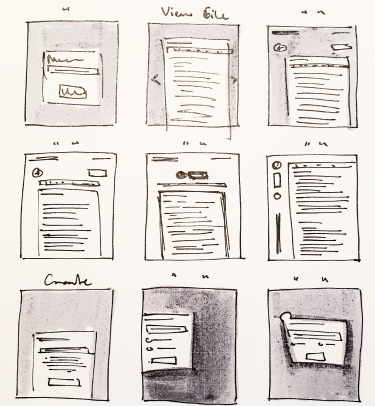 "
View File
" "
" "
" "
" "
Create
" "
" "